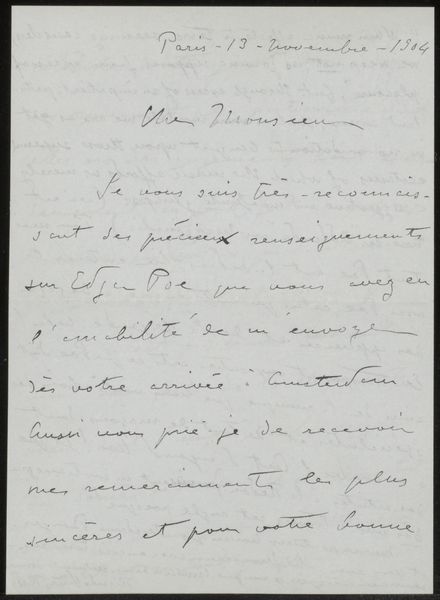 Paris - 13 - novembre - 1904
Cher Monsieur
Je vous suis très-reconnais-
sant des précieux renseignements
sur Edgar Poe que vous avez eu
l'amabilité de m'envoyer
dès votre arrivée à Amsterdam
Aussi vous prié je de recevoir
mes remerciements les plus
sincères et pour votre bonne